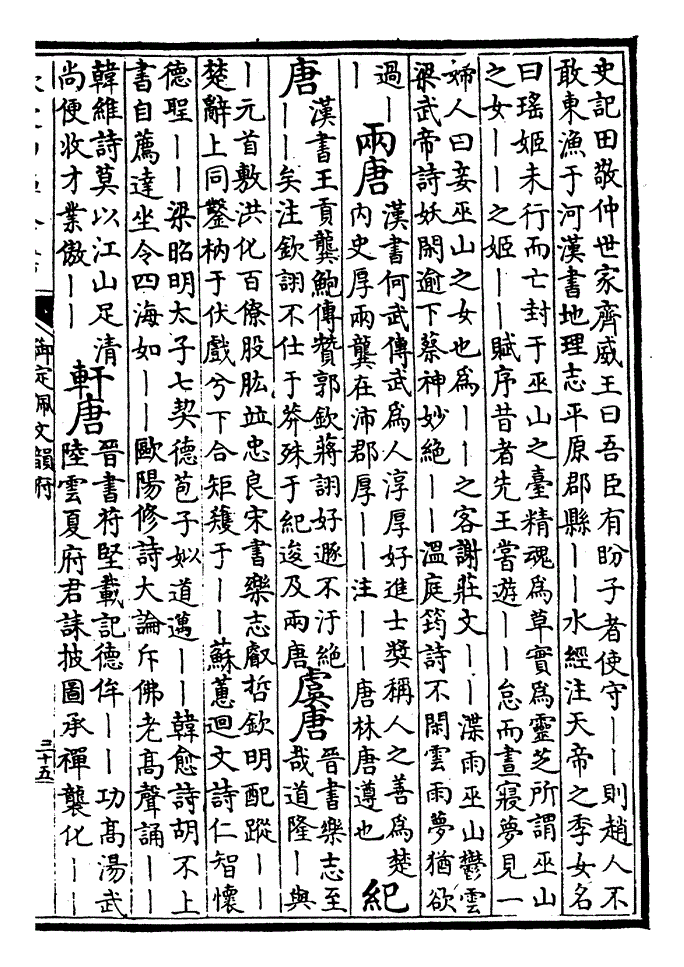 史記田敬仲世家齊威王曰吾臣有盼子者使守丨丨則趙人不
敢東漁于河漢書地理志平原郡縣丨丨水經注天帝之季女名
曰瑤姬未行而亡封于巫山之臺精魂為草實為靈芝所謂巫山
之女丨丨之姬丨丨賦序昔者先王嘗遊丨丨怠而晝寢夢見一
婦人曰妾巫山之女也為丨丨之客謝莊文丨丨渫雨巫山鬱雲
梁武帝詩妖閑逾下蔡神妙絶丨丨溫庭筠詩不閑雲雨夢猶欲
過丨
丨
兩唐
漢書何武傳武為人淳厚好進士奬稱人之善為楚
內史厚兩龔在沛郡厚丨丨注丨丨唐林唐遵也
紀
唐
漢書王貢龔鮑傳贊郭欽蔣詡好遯不汙絶
丨丨矣注欽詡不仕于莽殊于紀逡及兩唐
虞唐
晉書樂志至
哉道隆丨丨與
丨元首敷洪化百僚股肱竝忠良宋書樂志叡哲欽明配蹤丨丨
楚辭上同鑿枘于伏戲兮下合矩矱于丨丨蘇蕙迴文詩仁智懷
德聖丨丨梁昭明太子七契德苞子姒道邁丨丨韓愈詩胡不上
書自薦達坐令四海如丨丨歐陽修詩大論斥佛老高聲誦丨丨
韓維詩莫以江山足清
尚便收才業傲丨丨
軒唐
晉書苻堅載記德侔丨丨功高湯武
陸雲夏府君誄披圖承禪襲化丨丨
御定佩文韻府
三十五